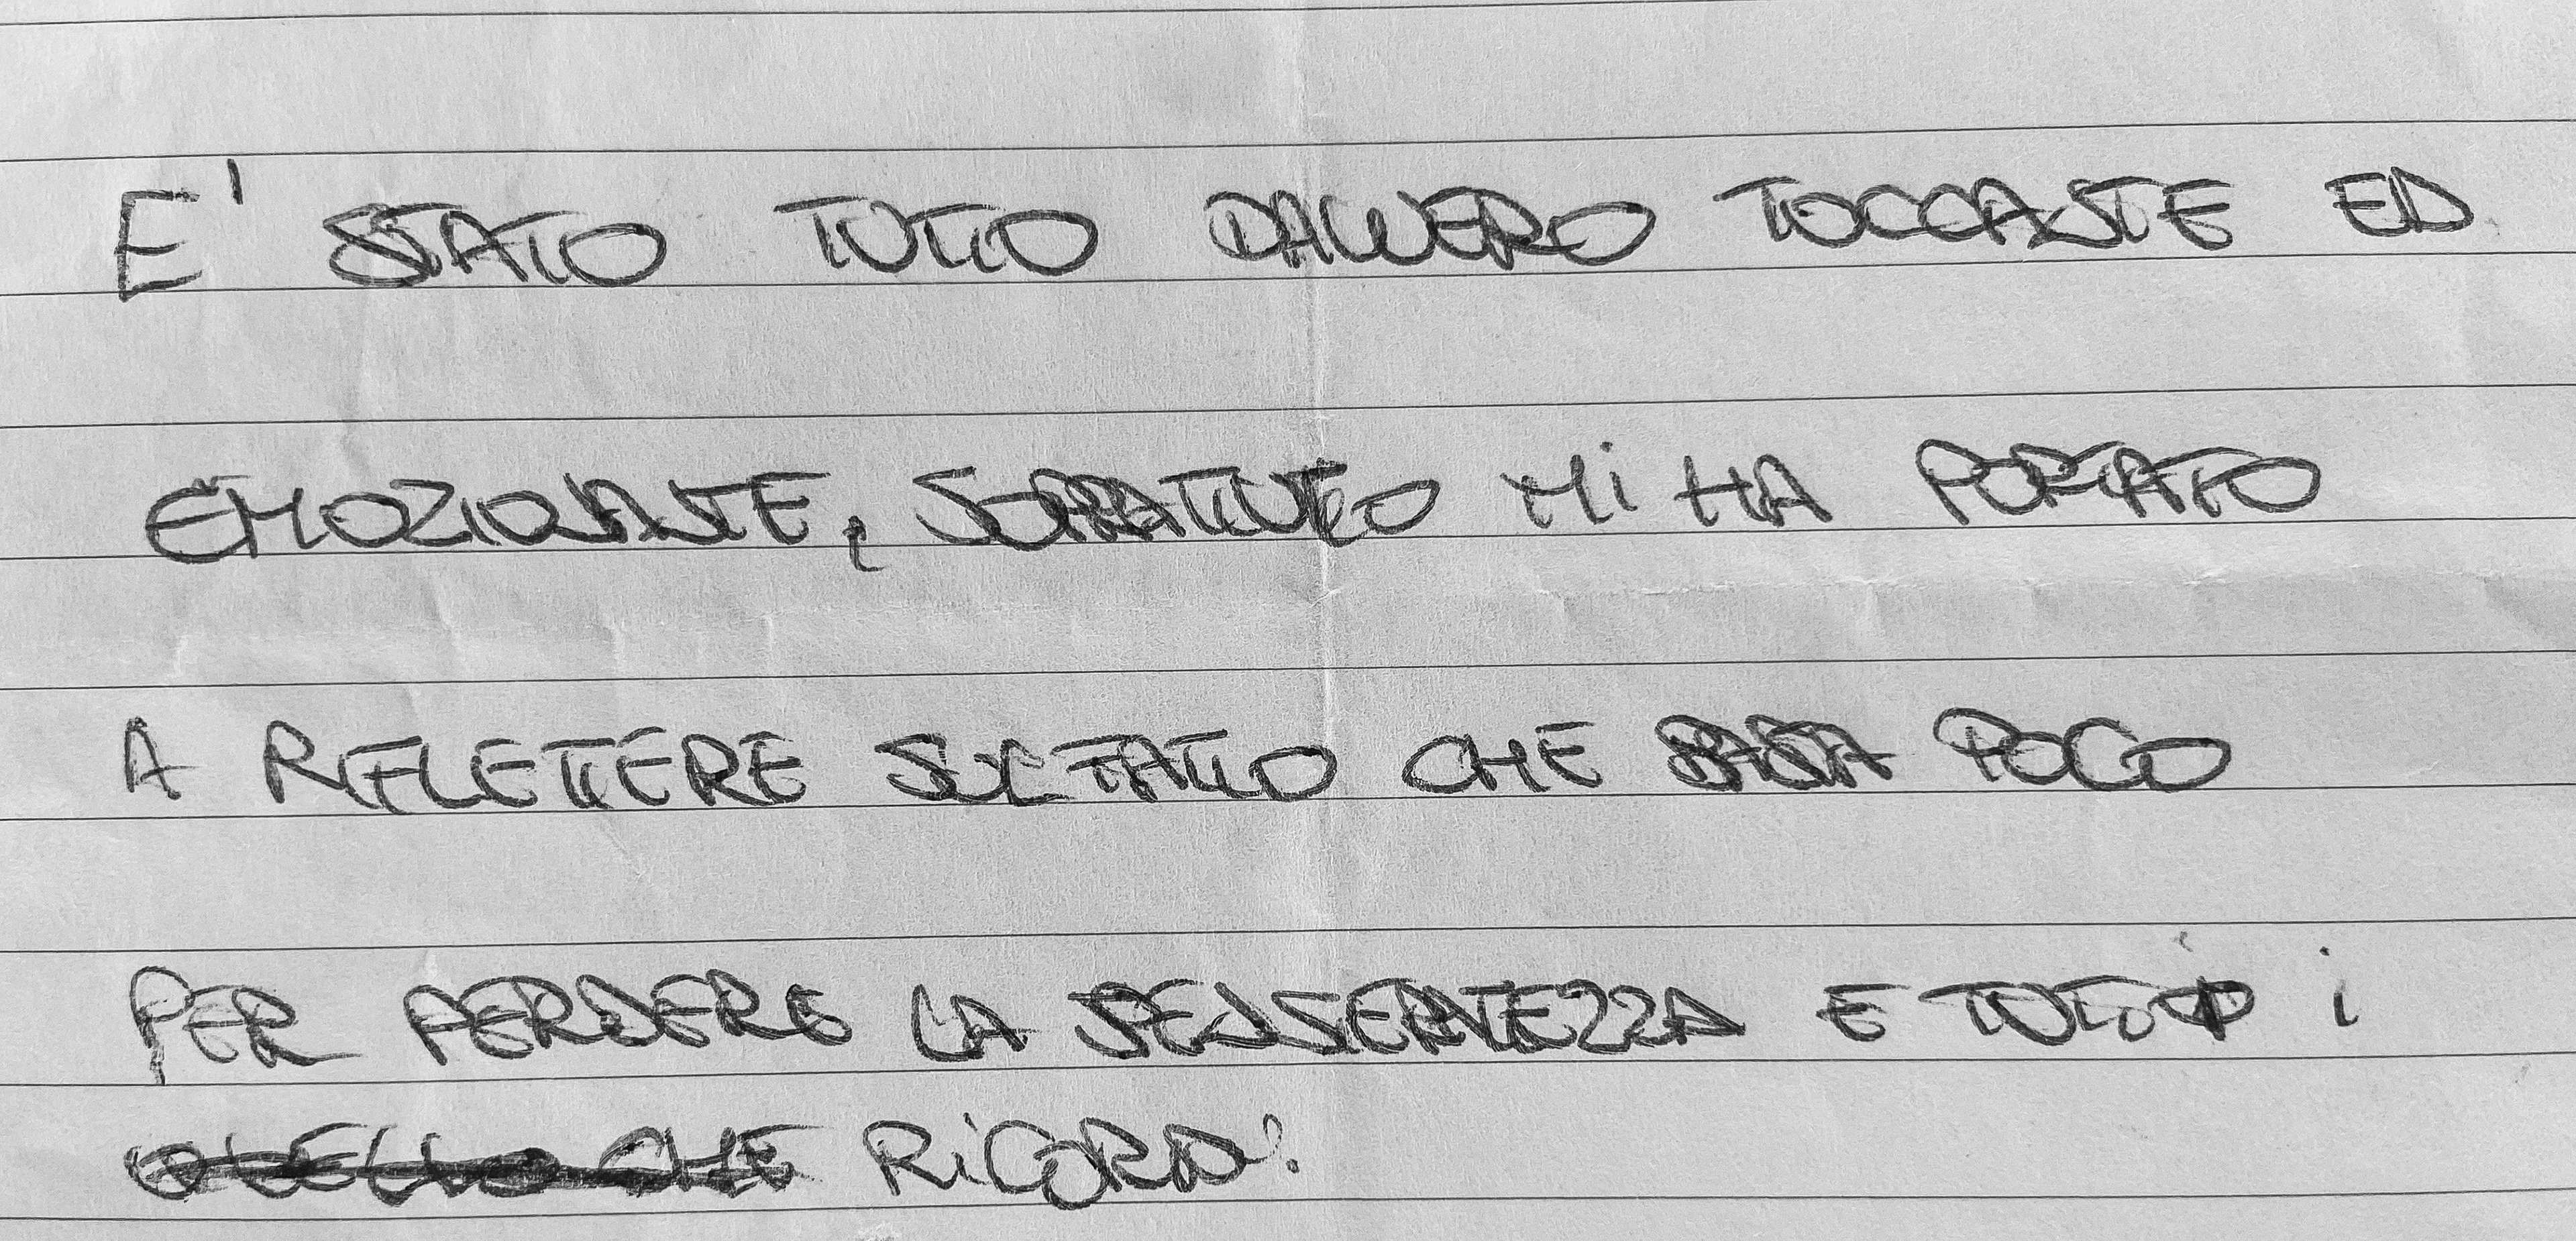 E' STATO TUTTO DAVVERO TOCCANTE ED
EMOZIONANTE, SOPRATTUTTO MI HA PORTATO
A RIFLETTERE SUL FATTO CHE BASTA POCO
PER PERDERE LA E TUTTI i
QUELLO CHE RiCORDi.